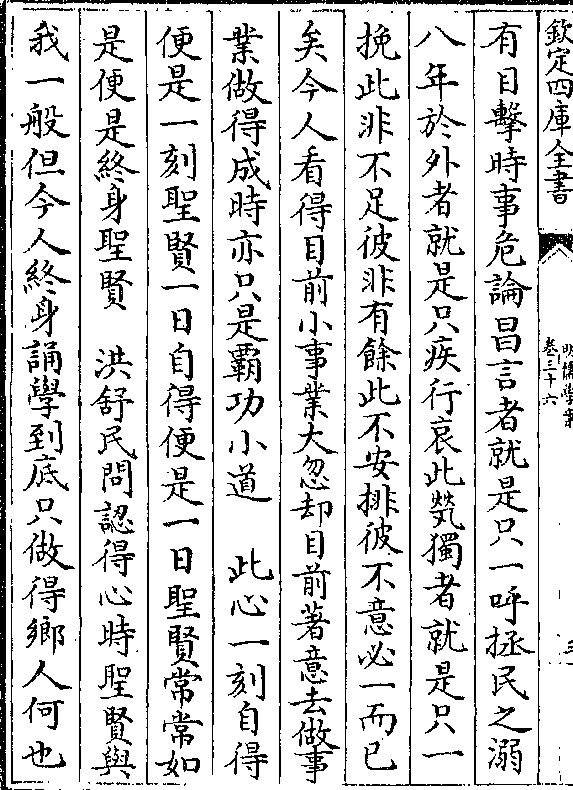 欽定四庫全書
明儒學案
卷三十六
有目擊時事危論昌言者就是只一呼拯民之溺
八年於外者就是只疾行哀此煢獨者就是只一
挽此非不足彼非有餘此不安排彼不意必一而已
矣今人看得目前小事業大忽却目前著意去做事
業做得成時亦只是霸功小道　此心一刻自得
便是一刻聖賢一日自得便是一日聖賢常常如
是便是終身聖賢　洪舒民問認得心時聖賢與
我一般但今人終身誦學到底只做得鄉人何也